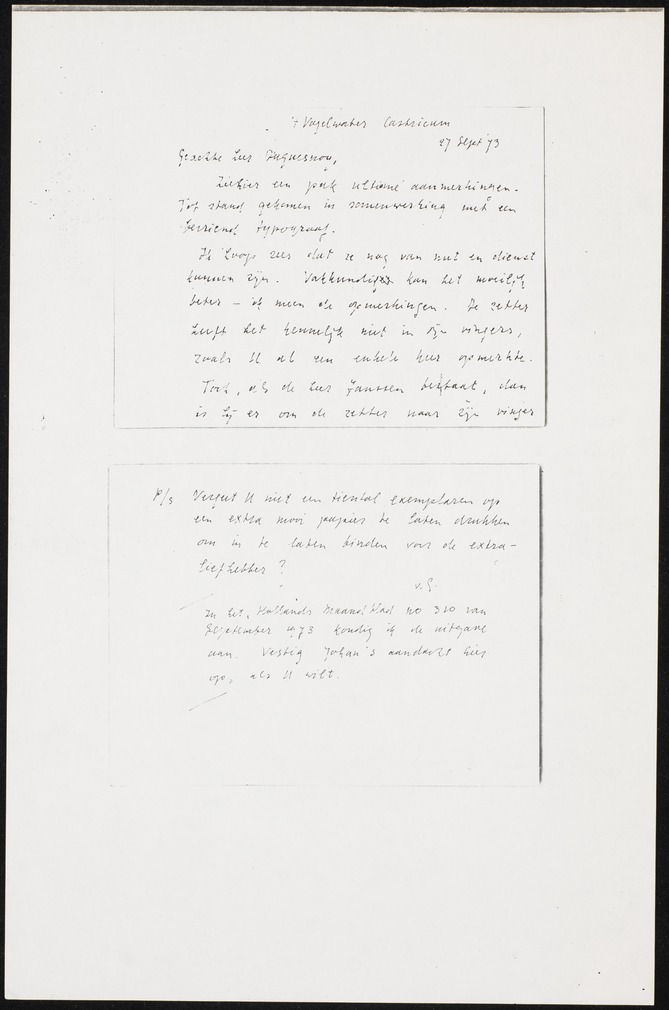 't Vogelwater Castricum
27 Sept '73
Geachte heer Duquesnoy,
Ziehier een pak ultieme aanmerkingen.
Tot stand gekomen in samenwerking met een
bevriend typograaf.
Ik hoop zeer dat ze nog van nut en dienst
kunnen zijn. Vakkundiger kan het moeilijk
beter – ik meen de opmerkingen. De zetter
heeft het kennelijk niet in zijn vingers,
zoals U al een enkele keer opmerkte.
Toch, als de heer Janssen bestaat, dan
is hij er om de zetter naar zijn vinger
P/s Vergeet U niet een tiental exemplaren op
een extra mooi papier te laten drukken
om in te laten binden voor de extra-
liefhebber?
v.G.
In het, Hollands Maandblad no 310 van
September 1973 kondig ik de uitgave
aan. Vestig Johan's aandacht hier
op, als U wilt.